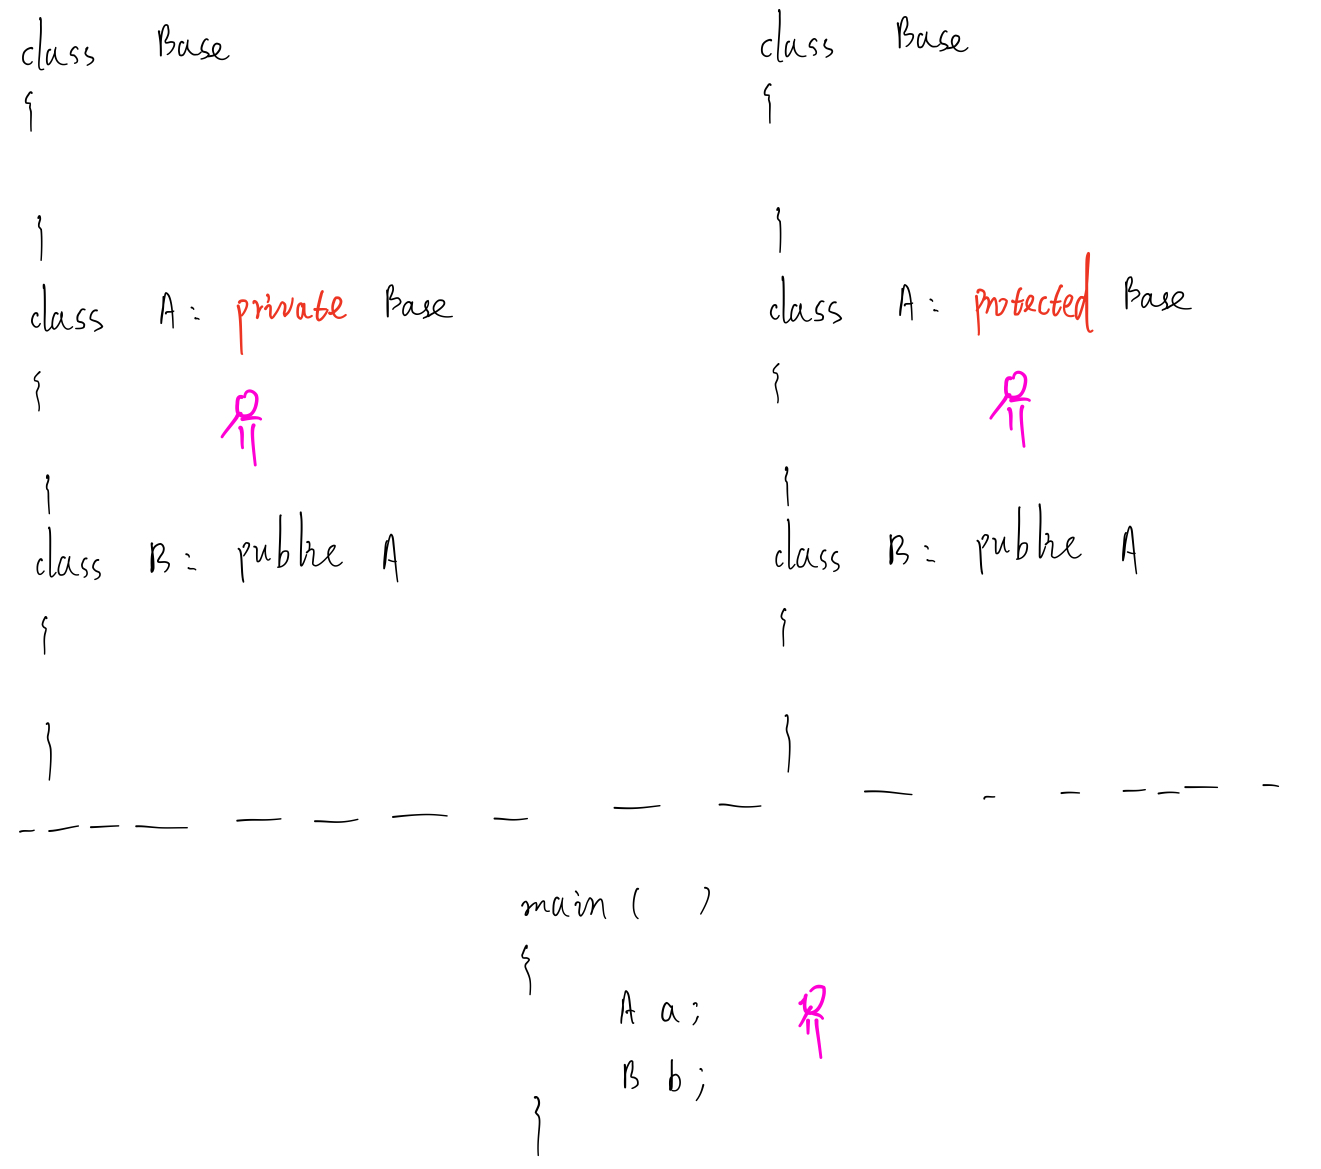 class Base
{
}
class A: private Base
{
}
class B: public A
{
}
class Base
{
}
class A: protected Base
{
}
class B: public A
{
}
main ( )
{
A a;
B b;
}